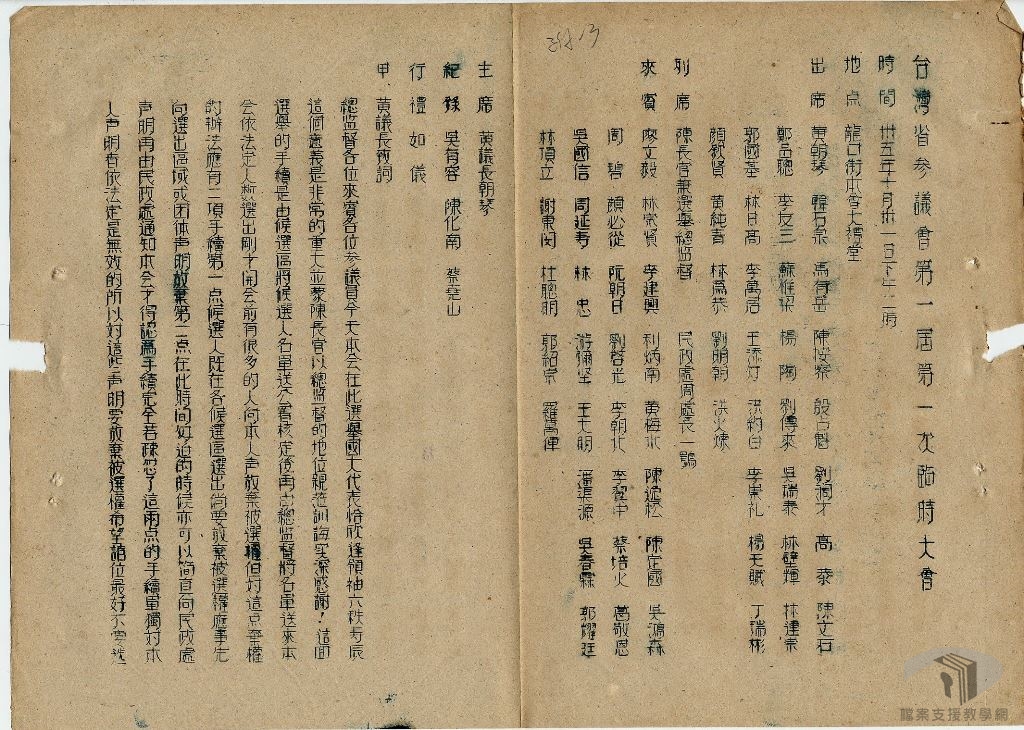 台灣省參議會第一屆第一次臨時大會
時間 卅五年十月卅一日下午二時
地点 龍口街本會大禮堂
出席 黃朝琴 韓石泉 馮存岳 陳按察 殷占魁 劉闊才 高恭 陳文石
鄭品聰 李友三 蘇惟梁 楊陶 劉傳來 吳瑞泰 林璧輝 林建宗
郭國基 林日高 李萬居 王添灯 洪約白 李崇礼 楊天賦 丁瑞彬
顏欽賢 黃純青 林為恭 劉明朝 洪火煉
列席 陳長官兼選舉總監督 民政處周處長一鶚
來賓 廖文毅 林宗賢 李建興 利炳南 黃梅水 陳逸松 陳定國 吳鴻森
周碧 顏必從 阮朝日 劉啓光 李朝北 李翼中 蔡培火 葛敬恩
吳國信 周延壽 林忠 游彌堅 王大明 潘渠源 吳春霖 郭耀廷
林頂立 謝東閔 杜聰明 郭紹宗 羅萬俥
主席 黃議長朝琴
紀錄 吳有容 陳化南 蔡堯山
行禮如儀
甲 黃議長致詞
總監督各位來賓各位参議員今天本会在此選舉國大代表恰欣逢領袖六秩寿辰
這個意義是非常的重大並蒙陳長官以總監督的地位親蒞訓誨实深感謝！這回
選舉的手續是由候選區將候選人名單送公署核定後再由總監督將名單送來本
会依法定人数選出剛才開会前有很多的人向本人声放棄被選權但对這点棄權
的辦法應有二項手續第一点候選人既在各候選區選出尚要放棄被選權應事先
向選出區域或团体声明放棄第二点在此時间如迫的時候亦可以简直向民政處
声明再由民政處通知本会才得認為手續完全若疎忽了這兩点的手續單獨对本
人声明查依法定是無效的所以对這些声明要放棄被選權希望諸位最好不要選
档案支援教學網